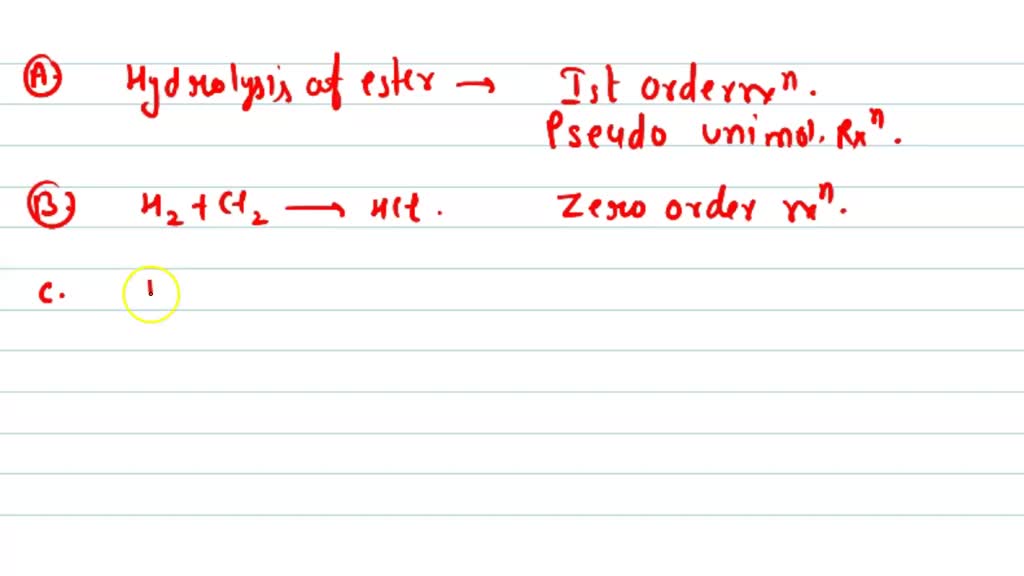 A. Hydrolysis of ester → Ist order rxⁿ.
Pseudo unimol. Rxⁿ.
B. H₂ + Cl₂ → HCl. Zero order rxⁿ.
C.